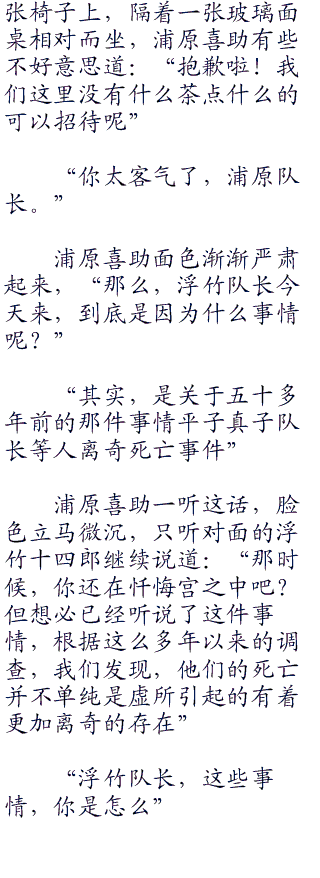 张椅子上，隔着一张玻璃面
桌相对而坐，浦原喜助有些
不好意思道：“抱歉啦！我
们这里没有什么茶点什么的
可以招待呢”
“你太客气了，浦原队
长。”
浦原喜助面色渐渐严肃
起来，“那么，浮竹队长今
天来，到底是因为什么事情
呢？”
“其实，是关于五十多
年前的那件事情平子真子队
长等人离奇死亡事件”
浦原喜助一听这话，脸
色立马微沉，只听对面的浮
竹十四郎继续说道：“那时
候，你还在忏悔宫之中吧？
但想必已经听说了这件事
情，根据这么多年以来的调
查，我们发现，他们的死亡
并不单纯是虚所引起的有着
更加离奇的存在”
“浮竹队长，这些事
情，你是怎么”